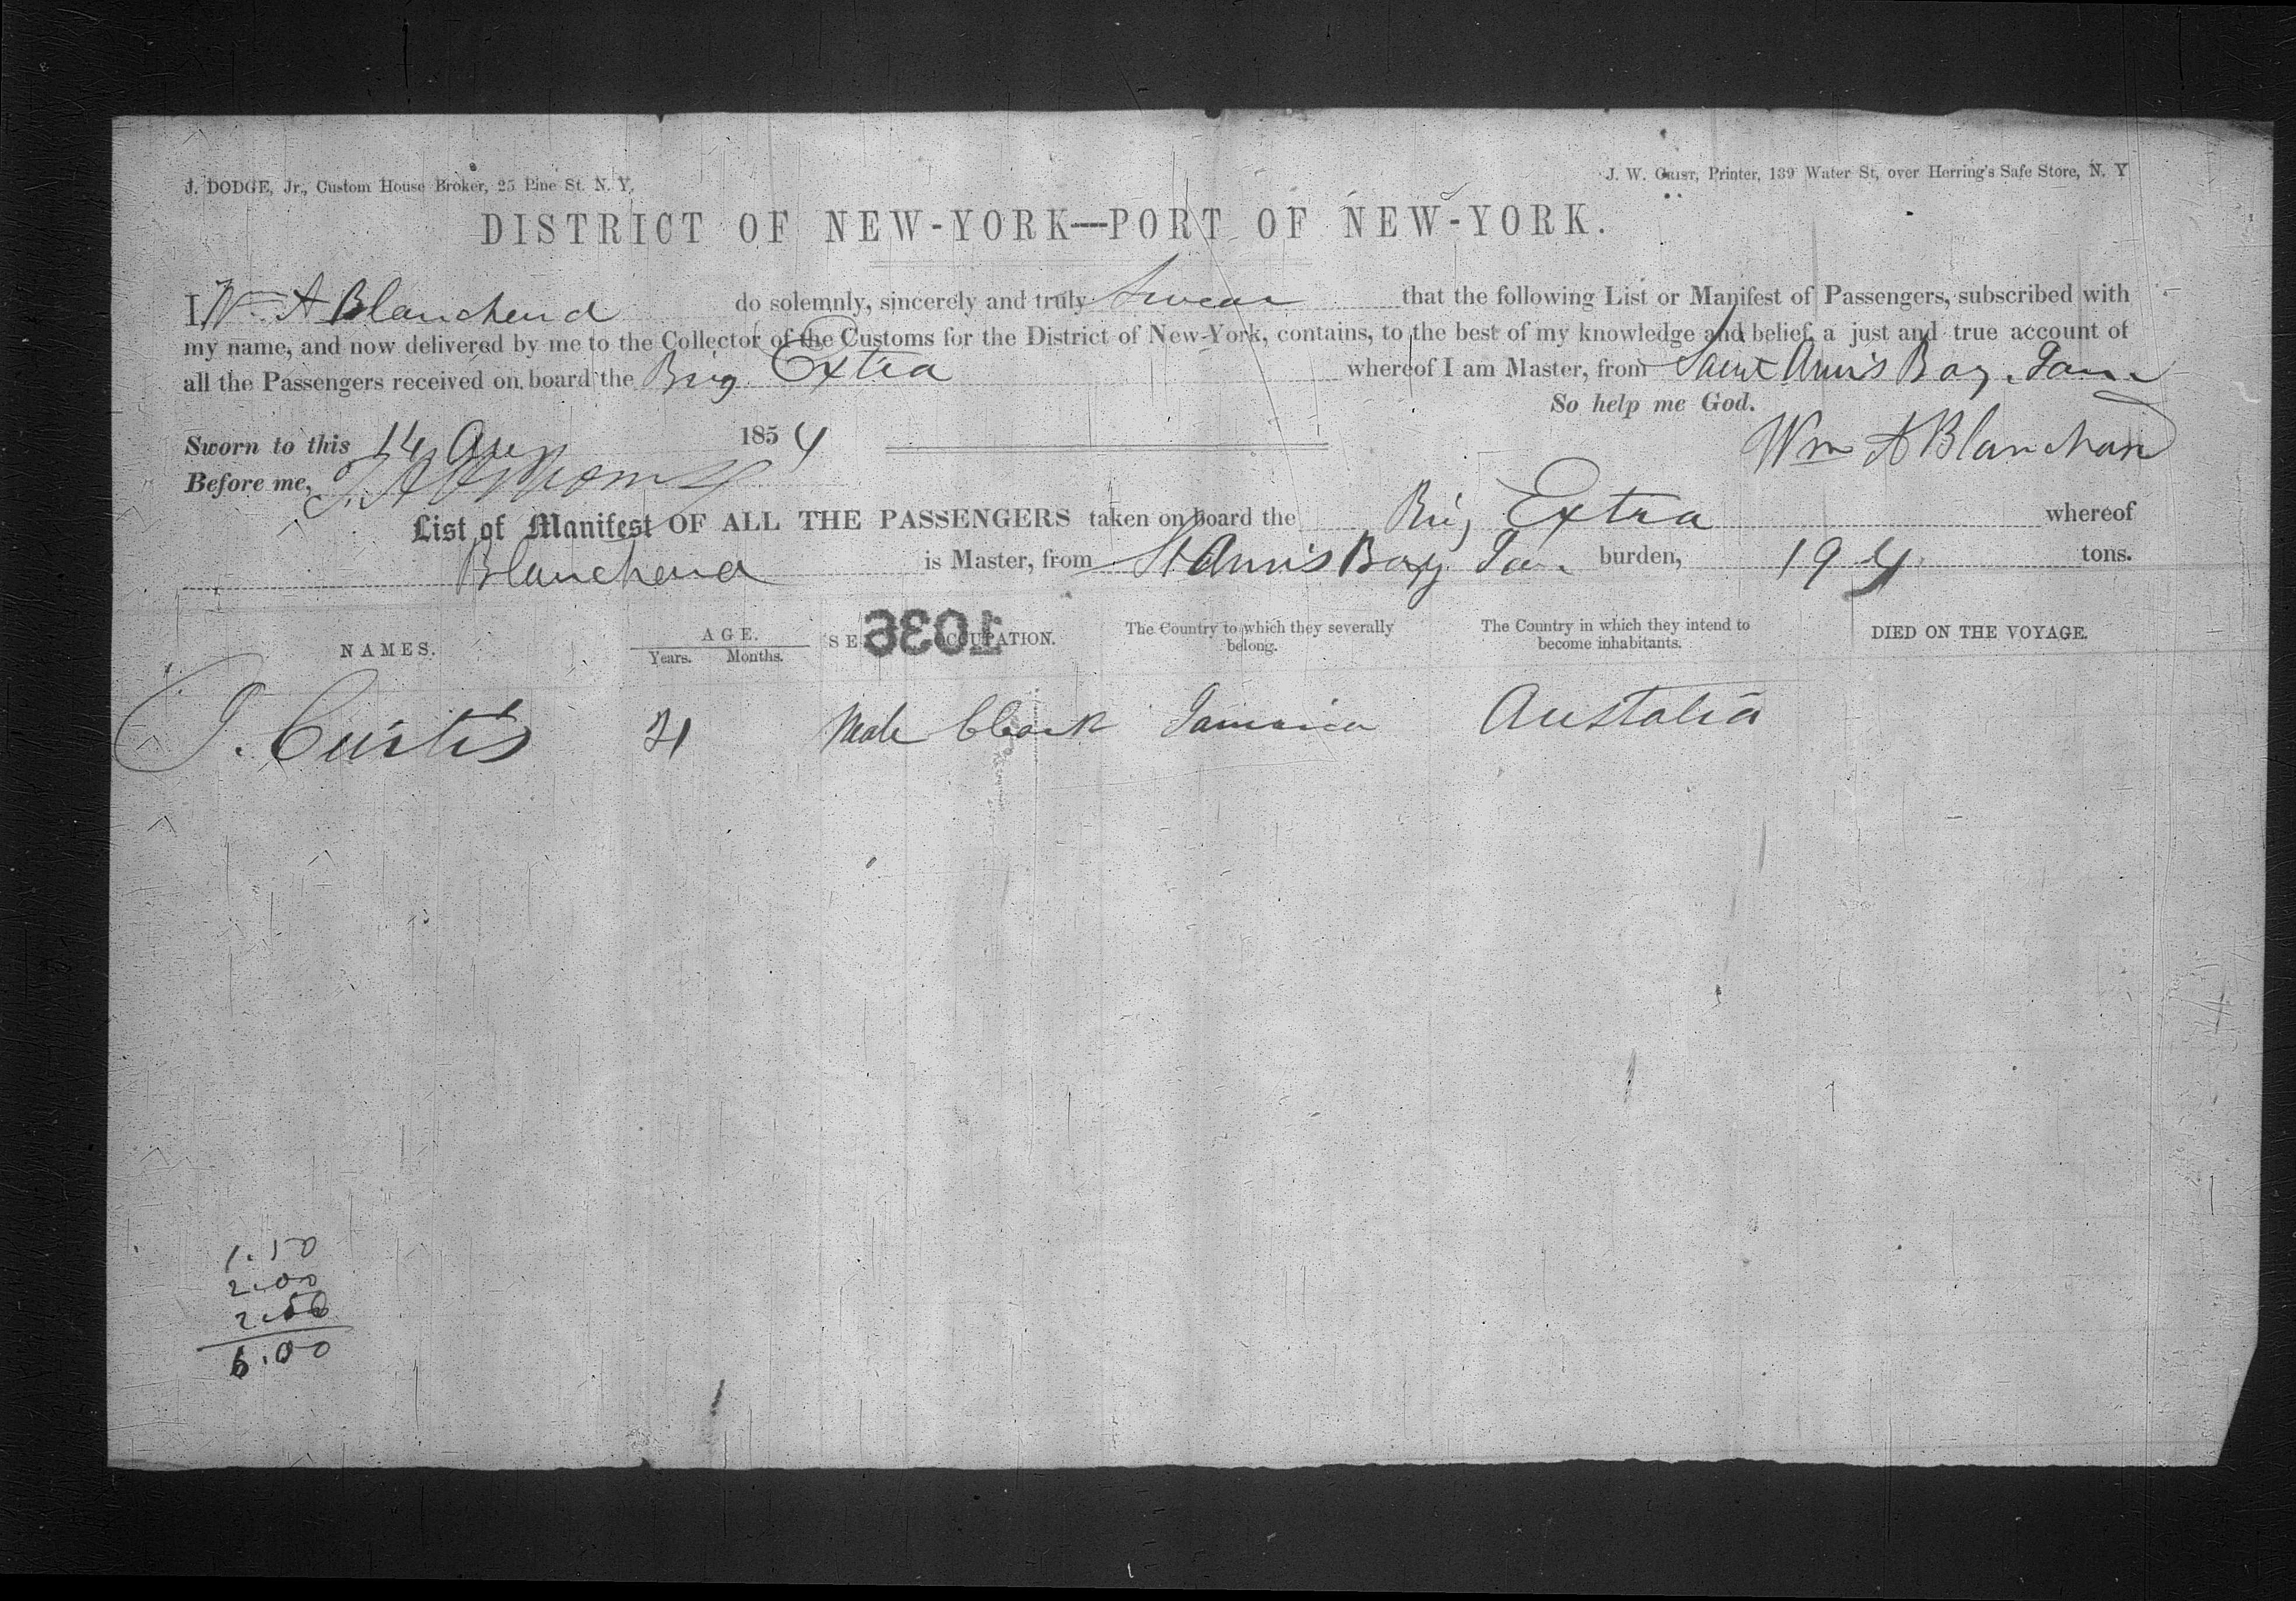 J. DODGE, Jr., Custom House Broker, 25 Pine St. N. Y.
J. W. GRIST, Printer, 139 Water St, over Herring's Safe Store, N. Y
DISTRICT OF NEW-YORK—PORT OF NEW-YORK.
I Wm A Blanchard do solemnly, sincerely and truly Swear that the following List or Manifest of Passengers, subscribed with
my name, and now delivered by me to the Collector of the Customs for the District of New-York, contains, to the best of my knowledge and belief, a just and true account of
all the Passengers received on board the Brig Extra whereof I am Master, from Saint Anns Bay, Jam
So help me God.
Sworn to this 14 Aug 1854
Wm A Blanchard
Before me,
List of Manifest OF ALL THE PASSENGERS taken on board the Brig Extra whereof
Blanchard is Master, from St Anns Bay Jam burden, 194 tons.
NAMES. AGE. Years. Months. SE OCCUPATION. The Country to which they severally belong. The Country in which they intend to become inhabitants. DIED ON THE VOYAGE.
1036
J. Curtis 21 Male Clerk Jamaica Austalia
1.50
2.00
2.50
6.00